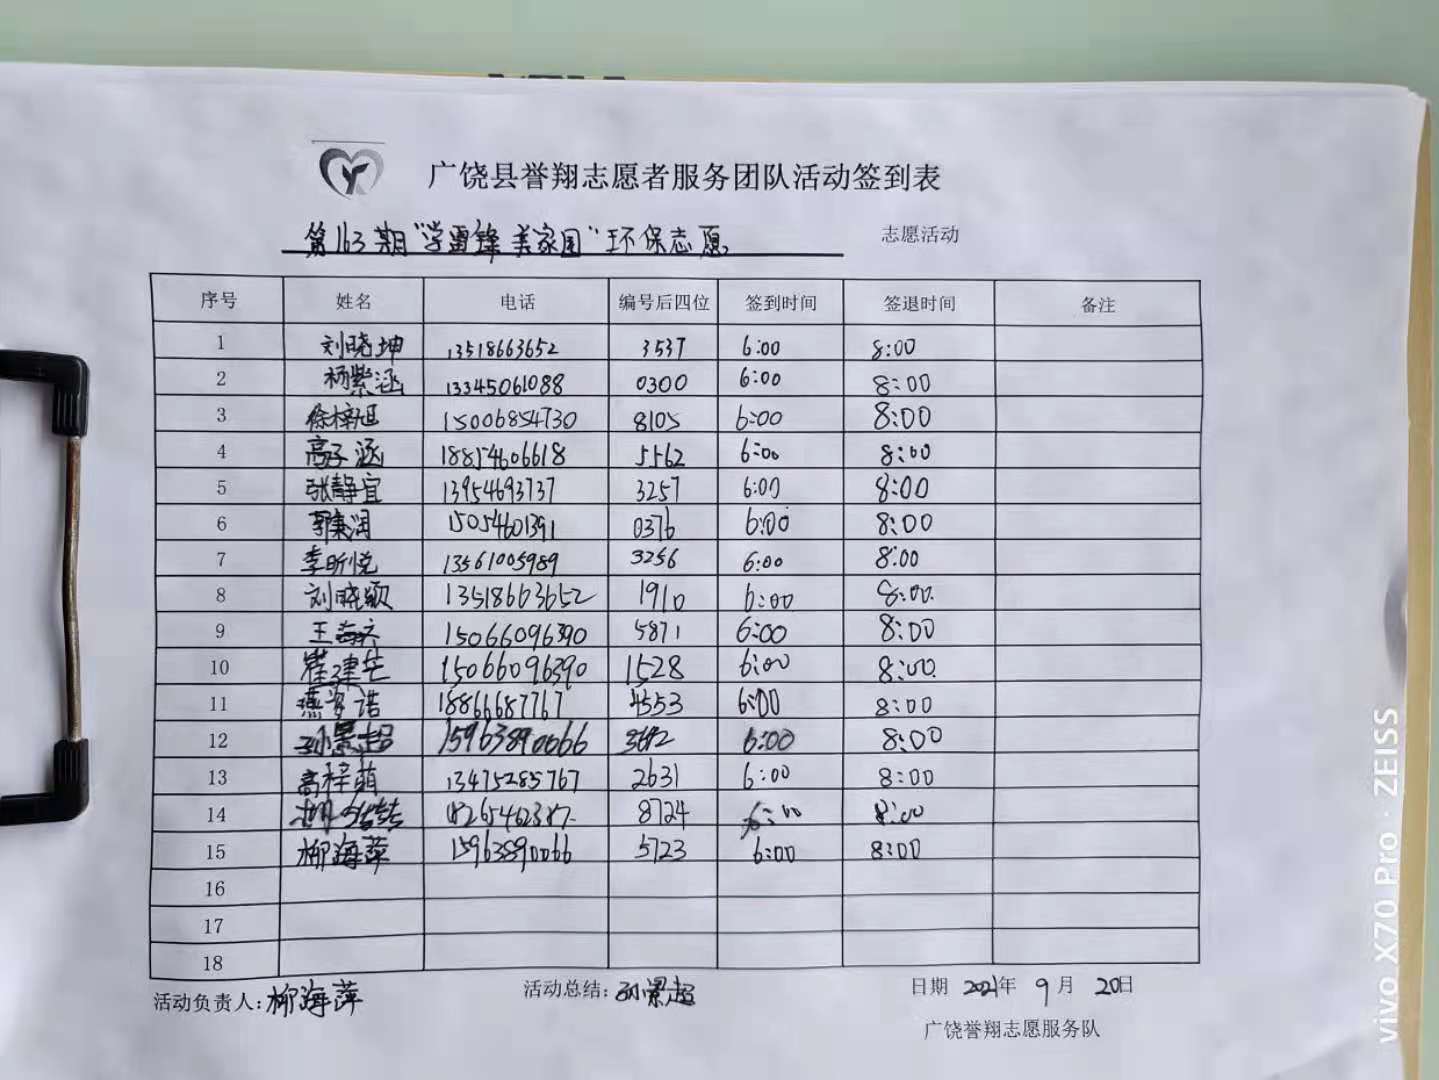 广饶县誉翔志愿者服务团队活动签到表
第163期“学雷锋 美家园”环保志愿 志愿活动
序号 姓名 电话 编号后四位 签到时间 签退时间 备注
1 刘晓坤 13518663652 3537 6:00 8:00
2 杨紫涵 13345061088 0300 6:00 8:00
3 徐梓旭 15006854730 8105 6:00 8:00
4 高子涵 18854606618 5562 6:00 8:00
5 张静宜 13954693737 3257 6:00 8:00
6 15054601391 0376 6:00 8:00
7 李昕悦 13561005989 3256 6:00 8:00
8 刘晓颖 13518663652 1910 6:00 8:00
9 王海 15066096390 5871 6:00 8:00
10 崔建芒 15066096390 1528 6:00 8:00
11 燕 诺 18866687767 4553 6:00 8:00
12 孙景超 15963890066 6:00 8:00
13 高梓萌 13475285767 2631 6:00 8:00
14 8724 6:00 8:00
15 柳海萍 15963890066 5723 6:00 8:00
16
17
18
活动负责人:柳海萍 活动总结:孙景超 日期 2021年 9月 20日
广饶誉翔志愿服务队
vivo X70 Pro · ZEISS